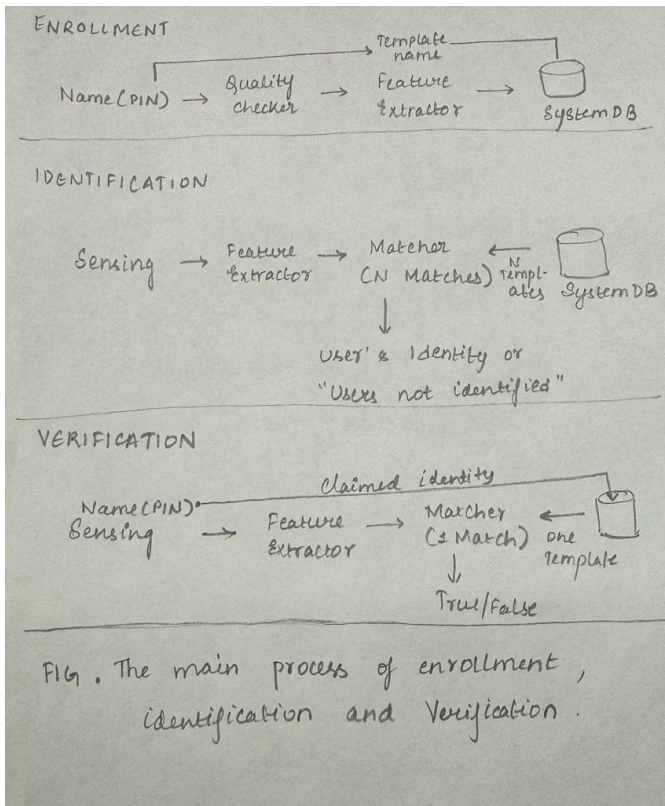 ENROLLMENT
Template
name
Name(PIN) → Quality checker → Feature Extractor → System DB
IDENTIFICATION
Sensing → Feature Extractor → Matcher (N Matches) ← N Templates System DB
User's Identity or
"Users not identified"
VERIFICATION
Claimed identity
Name(PIN)
Sensing → Feature Extractor → Matcher (1 Match) ← one Template
True/False
FIG. The main process of enrollment,
identification and Verification.